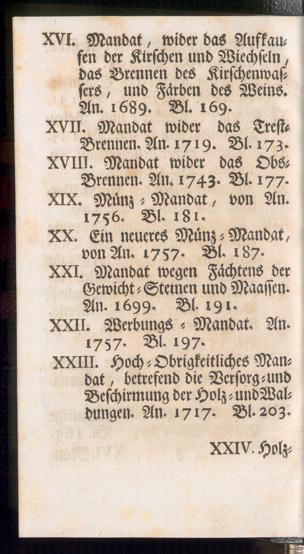 XVI. Mandat, wider das Aufkau-
fen der Kirschen und Wiechseln,
das Brennen des Kirschenwas-
sers, und Färben des Weins.
An. 1689. Bl. 169.
XVII. Mandat wider das Trest-
Brennen. An. 1719. Bl. 173.
XVIII. Mandat wider das Obs-
Brennen. An. 1743. Bl. 177.
XIX. Münz-Mandat, von An.
1756. Bl. 181.
XX. Ein neueres Münz-Mandat,
von An. 1757. Bl. 187.
XXI. Mandat wegen Fächtens der
Gewicht-Steinen und Maassen.
An. 1699. Bl. 191.
XXII. Werbungs-Mandat. An.
1757. Bl. 197.
XXIII. Hoch-Obrigkeitliches Man-
dat, betrefend die Versorg-und
Beschirmung der Holz-und Wal-
dungen. An. 1717. Bl. 203.
XXIV. Holz-